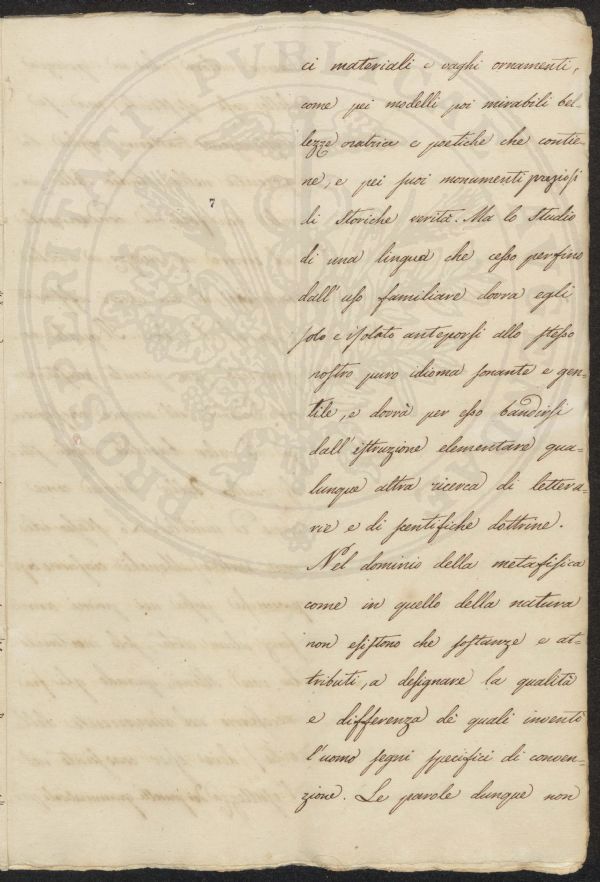 PROSPERITATI PVBLICAE
7
ci materiali e vaghi ornamenti,
come pei modelli poi mirabili bel-
lezze oratrice e poetiche che contie-
ne, e pei suoi monumenti preziosi
di storiche verità. Ma lo studio
di una lingua che cesso perfino
dall'uso familiare dovra egli
solo e isolato anteporsi allo stesso
nostro puro idioma sonante e gen-
tile, e dovrà per esso bandirsi
dall'istruzione elementare qua-
lunque altra ricerca di lettera-
rie e di scentifiche dottrine.
Nel dominio della metafisica
come in quello della natura
non esistono che sostanze e at-
tributi, a designare la qualità
e differenza de quali inventi
l'uomo segni specifici di conven-
zione. Le parole dunque non